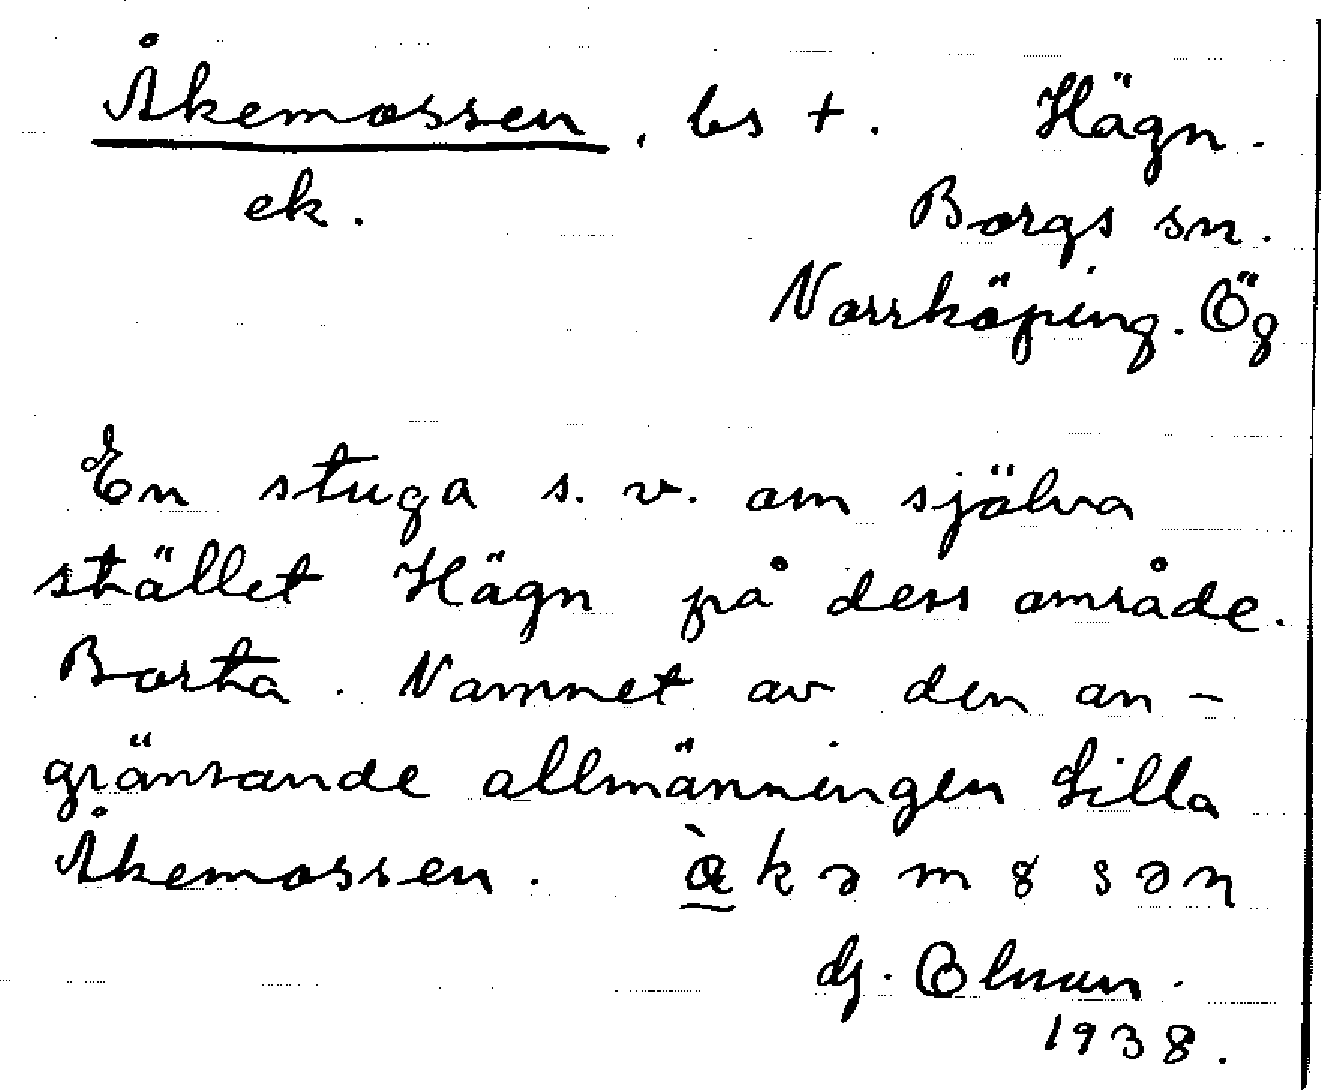 Åkemossen, ls +. Hägn.
ek. Borgs sn.
Norrköping. Ög
En stuga s. v. om själva
stället Hägn på dess område.
Borta. Namnet av den an-
gränsande allmänningen Lilla
Åkemossen. 
1938.